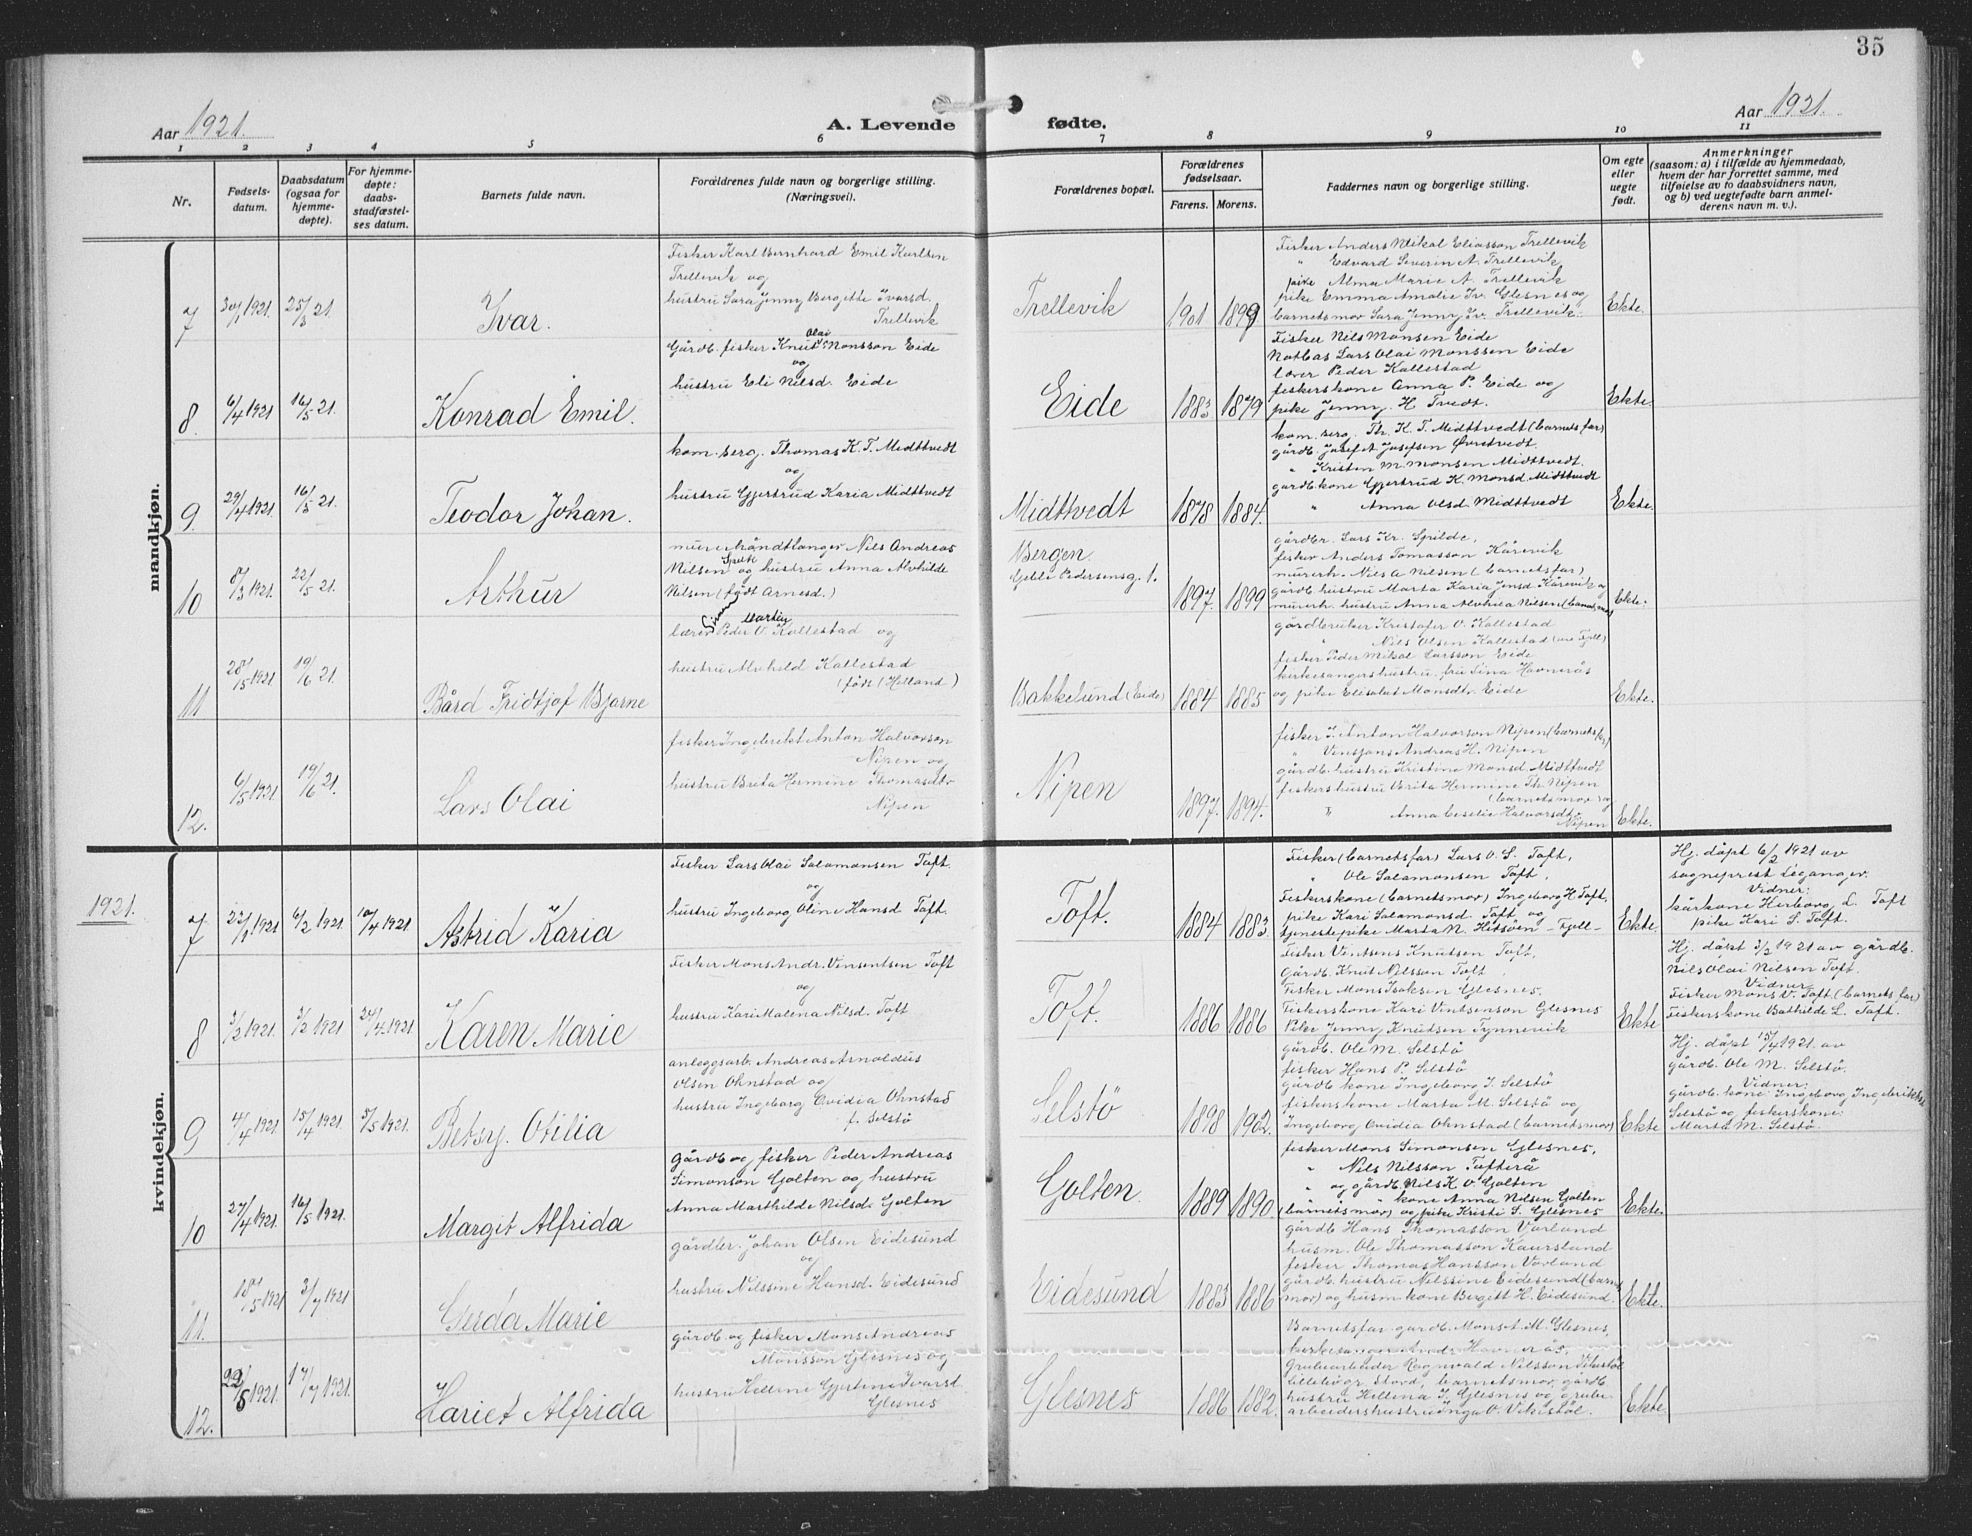 35
Aar 1921.
A. Levende fødte.
Aar 1921.
1 2 3 4 5 6 7 8 9 10 11
Nr.
Fødsels-
datum.
Daabsdatum
(ogsaa for
hjemme-
døpte).
For hjemme-
døpte:
daabs-
stadfæstel-
ses datum.
Barnets fulde navn.
Forældrenes fulde navn og borgerlige stilling.
(Næringsvei).
Forældrenes bopæl.
Forældrenes
fødselsaar.
Farens. Morens.
Faddernes navn og borgerlig stilling.
Om egte
eller
uegte
født.
Anmerkninger
(saasom: a) i tilfælde av hjemmedaab,
hvem der har forrettet samme, med
tilføielse av to daabsvidners navn,
og b) ved uegtefødte barn anmel-
derens navn m. v.).
mandkjøn.
7 30/1 1921. 25/3 21 Ivar.
Fisker Karl Bernhard Emil Karlsen
Trellevik og
hustru Sara Jenny Bergitte Ivarsd.
Trellevik
Trellevik 1901 1899
Fisker Anders Mikal Eliasson Trellevik
" Edvard Severin A. Trellevik
pike Alma Marie A. Trellevik
pike Emma Amalie Iv. Glesnes og
barnets mor Sara Jenny Iv. Trellevik.
Ekte.
8. 6/4 1921 16/5 21. Konrad Emil.
Gårdb. fisker Knut Olai Monsson Eide
og
hustru Eli Nilsd. Eide
Eide 1883 1879
Fisker Nils Monsen Eide
Notbas Lars Olai Monssen Eide
lærer Peder Kallestad
fiskerskone Anna P. Eide og
pike Jenny H. Tvedt.
Ekte.
9. 29/4 1921. 16/5 21. Teodor Johan.
kom. berg. Thomas K. T. Midttvedt
og
hustru Gjertrud Karia Midttvedt
Midttvedt 1878 1884.
kom. berg. Th. K. T. Midttvedt (barnets far)
gårdb. Josef A. Josefsen Øvretvedt
" Kristen M. Monsen Midttvedt.
gårdb. kone Gjertrud K. Monsd. Midttvedt
" Anna Olsd. Midttvedt
Ekte.
10 8/3 1921. 22/5 21. Arthur
murerhåndtlanger Nils Andreas
Nilsen og hustru Anna Alvhilde
Nilsen (født Arnesd.)
Bergen
Geble Pedersensg. 1.
1897. 1899
gårdbr. Lars Kr. Spilde,
fisker Anders Tomasson Kårevik
murerh. Nils A Nilsen (barnets far)
gårdb. hustru Marta Karia Jensd. Kårevik og
murerh. hustru Anna Alvhild Nilsen (barnets mor)
Ekte.
11 28/5 1921 19/6 21. Bård Fridtjof Bjarne
lærer Peder Martin V. Kallestad og
hustru Alvhild Kallestad
(født Helland)
Bakkelund (Eide) 1884 1885
gårdbruker Kristofer O. Kallestad
" Nils Olsen Kallestad
fisker Peder Mikal Larsson Eide
kirkesangershustru, fru Sina Havnerås
og pike Elisabet Monsdtr. Eide
Ekte.
12. 6/5 1921. 19/6 21. Lars Olai
fisker Ingebrikt Anton Halvorson
Nipen og
hustru Brita Hermine Thomasdtr
Nipen
Nipen 1897. 1894.
fisker I. Anton Halvorson Nipen (barnets far)
" Vensjans Andreas H. Nipen
gårdb. hustru Kristine Monsd. Midttvedt
fiskershustru Brita Hermine Th. Nipen
(barnets mor) og
" Anna Cecilie Halvorsdtr.
Nipen
Ekte.
1921.
kvindekjøn.
7 22/1 1921 6/2 1921. 10/4 1921 Astrid Karia
Fisker Lars Olai Salamonsen Toft.
og
hustru Ingeborg Oline Hansd Toft.
Toft. 1884 1883.
Fisker (barnets far) Lars O. S. Toft,
" Ole Salamonsen Toft,
Fiskerskone (barnets mor) Ingeborg H. Toft,
pike Kari Salamonsd. Toft og
tjenestepike Marta N. Hitsöen - Fjell -
Ekte.
Hj. døpt 6/2 1921 av
sogneprest Leganger.
Vidner:
kårkone Herborg L. Toft
pike Kari S. Toft.
8 3/2 1921. 3/2 1921 24/4 1921. Karen Marie
Fisker Mons Andr. Vinsentsen Toft
og
hustru Kari Malena Nilsd. Toft
Toft. 1886 1886
Fisker Ventsens Knutsen Toft,
Gårdb. Knut Nilsson Toft,
Fisker Mons Isaksen Glesnes.
Fiskerskone Kari Vintsenson Glesnes
Pike Jenny Knutsen Tynnevik
Ekte
Hj. døpt 3/2 1921 av gårdb.
Nils Olai Nilsen Toft.
Vidner
Fisker Mons V. Toft. (barnets far)
Fiskerskone Bathilde L. Toft.
9 4/4 1921 15/4 1921. 5/5 1921. Betsy. Otilia
anleggsarb. Andreas Arnoldus
Olsen Ohnstad og
hustru Ingeborg Ovidia Ohnstad
f. Selstö
Selstö 1898 1902.
gårdb. Ole M. Selstö
fisker Hans P. Selstö
gårdb kone Ingeborg I. Selstö
fiskerskone Marta M. Selstö og
Ingeborg Ovidia Ohnstad (barnets mor)
Ekte
Hj. døpt 15/4 1921. av
gårdb. Ole M. Selstö.
Vidner:
gårdb. kone: Ingeborg Ingebriktsd.
Selstö og fiskerskone:
Marta M. Selstö.
10 27/4 1921. 16/5 1921. Margit Alfrida
Gårdb og fisker Peder Andreas
Simonson Golten og hustru
Anna Marthilde Nilsd. Golten
Golten. 1889 1890.
fisker Mons Simonsen Glesnes,
" Nils Nilsson Tofterå
" og gårdb. Nils K. O. Golten
" " kone Anna Nilsen Golten
(barnets mor) og pike Kristi S. Glesnes
Ekte.
11. 18/5 1921 3/7 1921 Gerda Marie
gårdbr. Johan Olsen Eidesund
og
hustru Nilssine Hansd. Eidesund
Eidesund 1883 1886
gårdb Hans Thomasson Vorland
husm. Ole Thomasson Kaursland
fisker Thomas Hansson Vorland
gårdb. hustru Nilssine Eidesund (barnets
mor) og husm. kone Bergitt H. Eidesund.
Ekte.
12. 22/5 1921. 17/7 1921. Hariet Alfrida
gårdb og fisker Mons Andreas
Monsson Glesnes og
hustru Hellene Gjertine Ivarsd.
Glesnes
Glesnes 1886 1882.
Barnets far gårdb. Mons A. M. Glesnes,
kirkesanger Andr. Havnerås,
Grubearbeider Ragnvald Nilsson Vikestøl
Lillebügr. Stord, barnets mor, gårdb.
hustru Hellena I. Glesnes og grube-
arbeidershustru Inga O. Vikestøl.
Ekte.